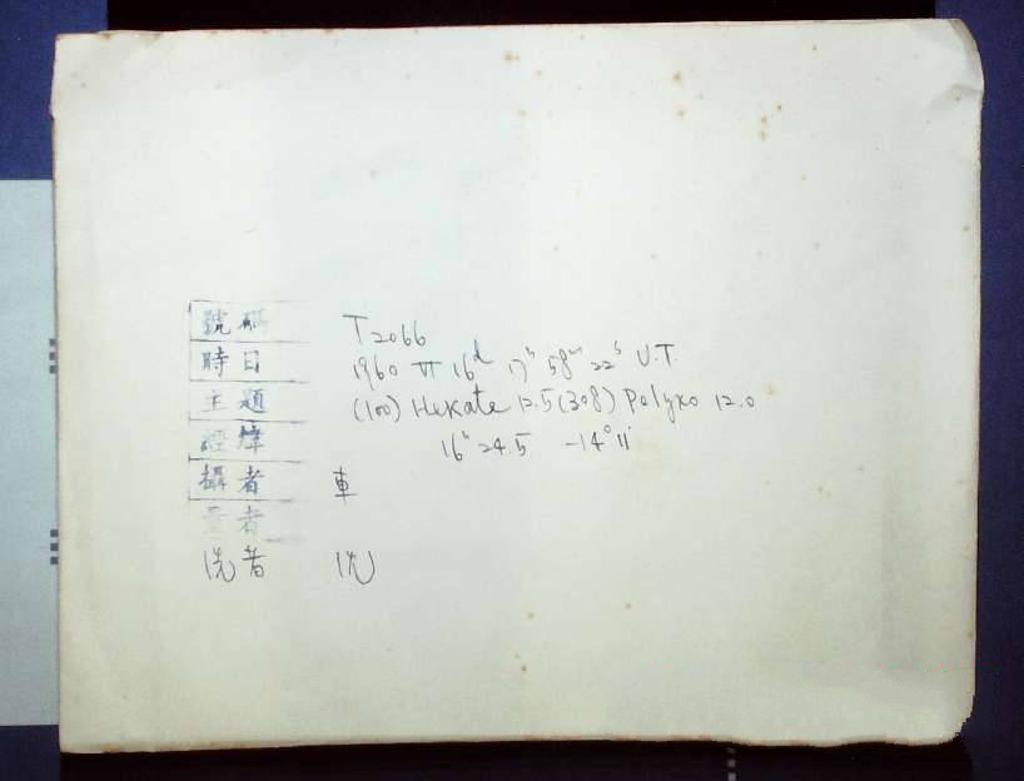 號碼 T2066
時日 1960 VI 16ᵈ 17ʰ 58ᵐ 22ˢ U.T.
主題 (100) Hekate 12.5 (308) Polyxo 12.0
經緯 16ʰ 24.5 -14° 11'
攝者 車
量者
洗者 沈